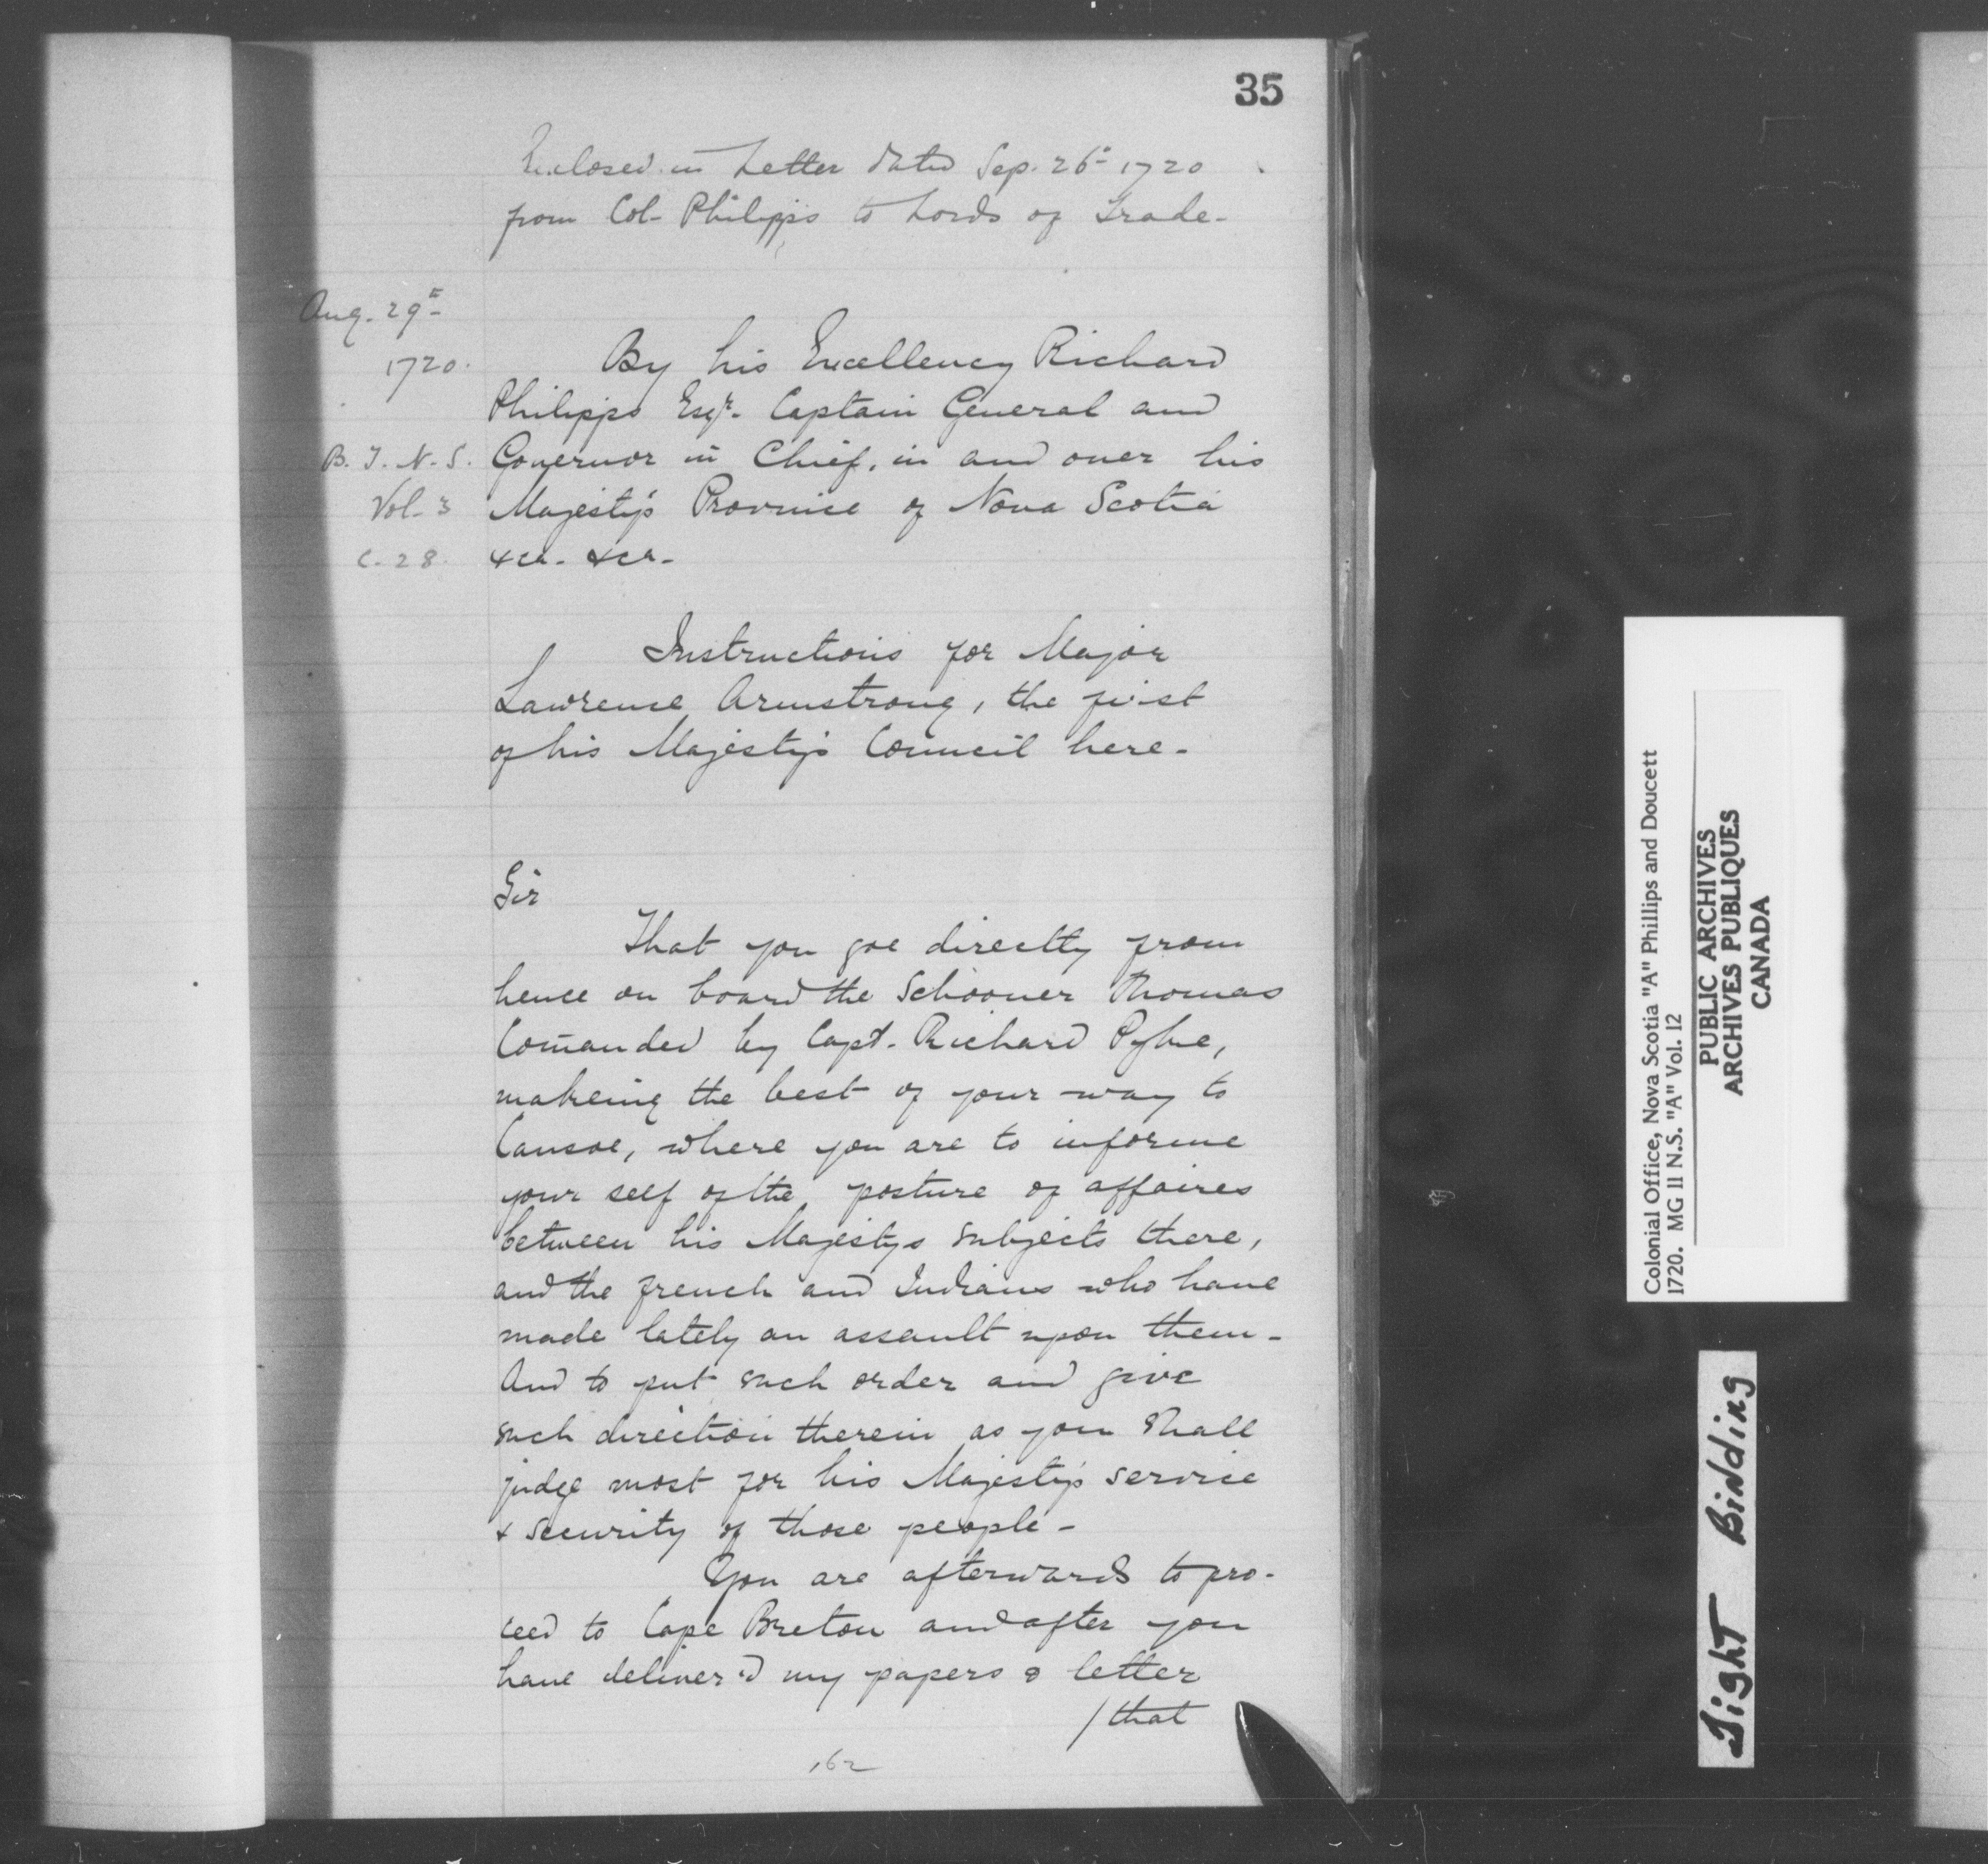 35
Enclosed in Letter dated Sep. 26th 1720
from Col. Philipps to Lords of Trade-
Aug. 29th
1720.
B. T. N. S.
Vol. 3
C. 28.
By his Excellency Richard
Philipps Esqr. Captain General and
Governor in Chief, in and over his
Majesty's Province of Nova Scotia
&ca. &ca.
Instructions for Major
Lawrence Armstrong, the first
of his Majesty's Council here-
Sir
That you goe directly from
hence on board the Schooner Thomas
Comanded by Capt. Richard Pyke,
makeing the best of your way to
Cansoe, where you are to informe
your self of the posture of affaires
between his Majestys subjects there,
and the french and Indians who have
made lately an assault upon them-
And to put such order and give
such direction therein as you Shall
judge most for his Majesty's service
& security of those people-
You are afterwards to pro-
ceed to Cape Breton and after you
have deliver'd my papers & letter
/that
162
Colonial Office, Nova Scotia "A" Phillips and Doucett
1720. MG 11 N.S. "A" Vol. 12
PUBLIC ARCHIVES
ARCHIVES PUBLIQUES
CANADA
Tight Binding